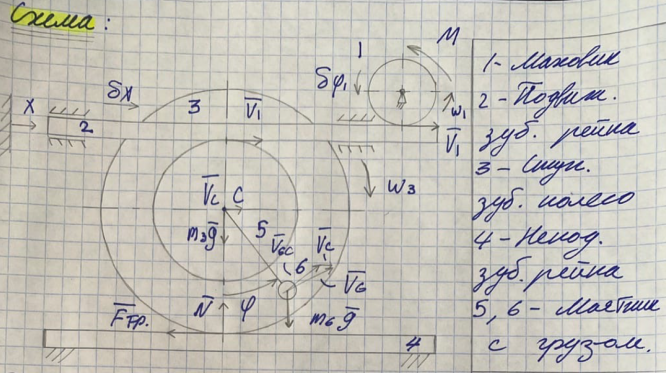 Схема:
M
1
δφ₁
ω₁
V̅₁
δX
X
2
3
V̅₁
ω₃
V̅c
C
m₃g̅
5
V̅6c
6
V̅c
V̅6
N̅
φ
m6g̅
F̅тр.
4
1- Маховик
2- Подвиж.
зуб. рейка
3- Ступ.
зуб. колесо
4- Непод.
зуб. рейка
5, 6- Маятник
с грузом.